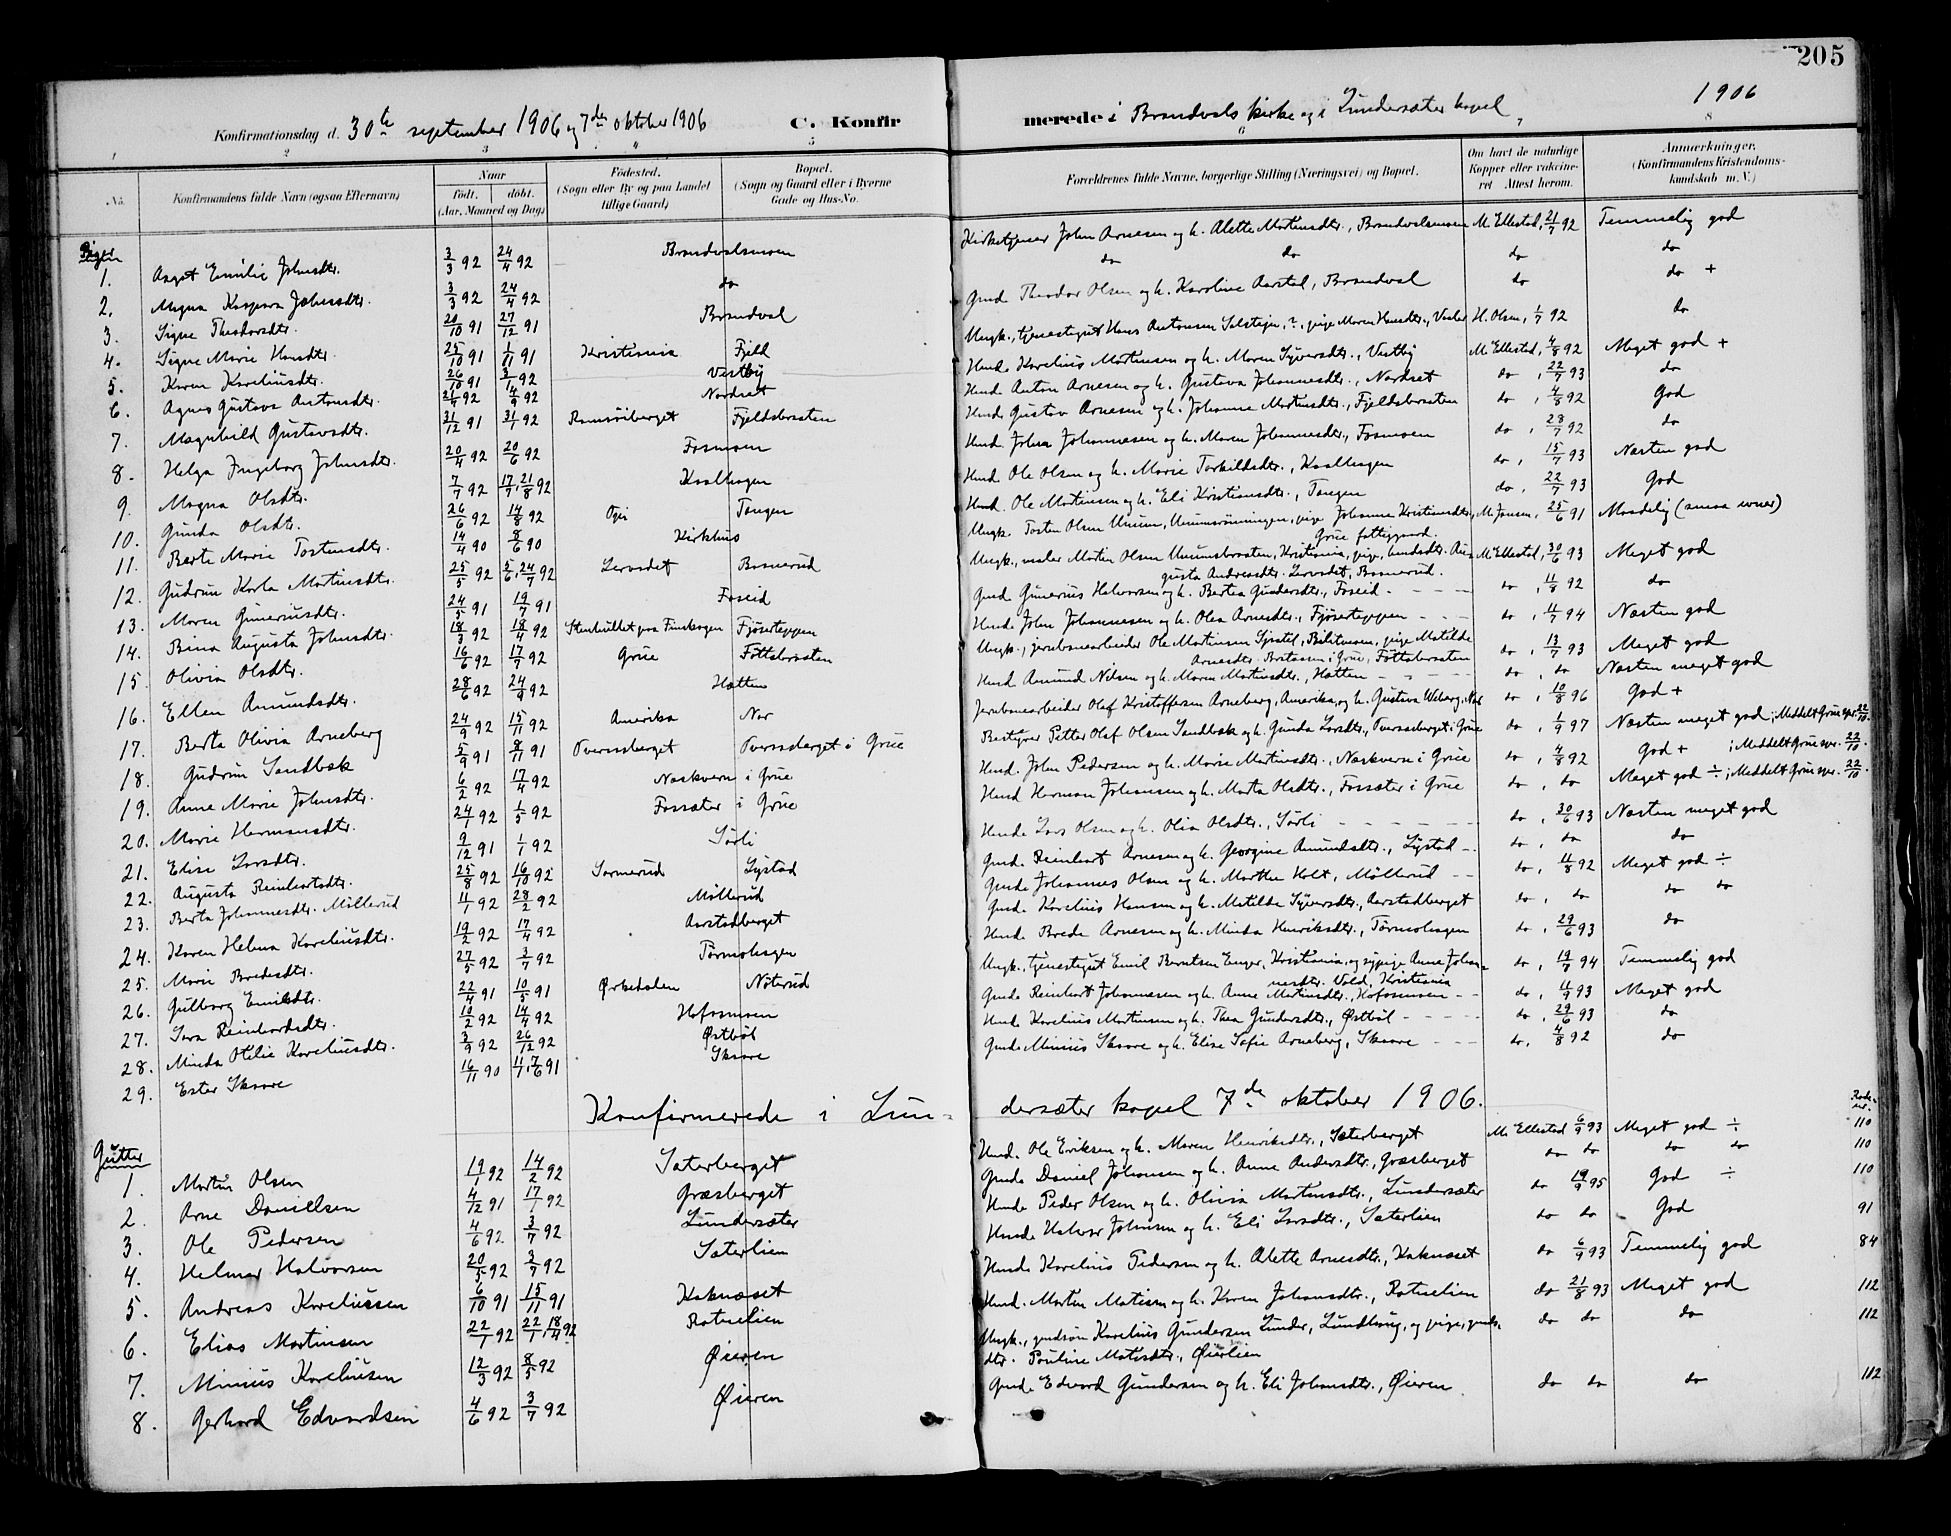 205
Konfirmationsdag d. 30te september 1906 og 7de oktober 1906 C. Konfirmerede i Brandvals kirke og i Lundersæter kapel, 1906
1 2 3 4 5 6 7 8
No. Konfirmandens fulde Navn (ogsaa Efternavn) Naar født. døbt. (Aar, Maaned og Dag) Fødested. (Sogn eller By og paa Landet tillige Gaard) Bopæl. (Sogn og Gaard eller i Byerne Gade og Hus-No. Forældrenes fulde Navne, borgerlige Stilling (Næringsvei) og Bopæl. Om havt de naturlige Kopper eller vakcineret Attest herom. Anmærkninger. (Konfirmandens Kristendomskundskab m. V.)
Piger
1. Aagot Emilie Johnsdtr. 3/3 92 24/4 92 Brandvalsmoen Kirketjener John Arnesen og h. Alette Martinsdtr., Brandvalsmoen M. Ellestad, 21/7 92 Temmelig god
2. Magna Kaspara Johnsdtr. 3/3 92 24/4 92 do do do do do
3. Signe Theodorsdtr. 20/10 91 27/12 91 Brandval Gmd. Theodor Olsen og h. Karoline Aarstad, Brandval do do +
4. Signe Marie Hansdtr. 25/10 91 1/11 91 Kristiania Fjeld Ungk., tjenestegut Hans Antonsen, pige Maren Hansdtr., H. Olsen, 1/7 92 do
5. Karen Kareliusdtr. 26/10 91 3/1 92 Vestby Husmd. Karelius Martinsen og h. Maren Syversdtr., Vestby M. Ellestad, 4/8 92 Meget god +
6. Agnes Gustava Antonsdtr. 21/4 92 4/9 92 Nordset Husmd. Anton Arnesen og h. Gustava Johannesdtr., Nordset do, 22/7 93 do
7. Magnhild Gustavsdtr. 31/12 91 31/1 92 Fjeldsbraaten Husmd. Gustav Arnesen og h. Johanne Martinsdtr., Fjeldsbraaten do, 4/8 92 God
8. Helga Ingeborg Johnsdtr. 20/4 92 20/6 92 Fosmoen Husmd. Johan Johannesen og h. Maren Johannesdtr., Fosmoen do, 28/7 92 do
9. Magna Olsdtr. 7/7 92 17/7, 21/8 92 Kaalhagen Husmd. Ole Olsen og h. Marie Torkildsdtr., Kaalhagen do, 15/7 93 Næsten god
10. Gunda Olsdtr. 26/6 92 14/8 92 Tangen Husmd. Ole Martinsen og h. Eli Kristiansdtr., Tangen do, 22/7 93 God
11. Berte Marie Tostensdtr. 14/4 90 8/6 90 Kirkhus Ungk. Tosten Olsen, pige Johanne Kristiansdtr., Grue fattiggaard. M. Jensen, 25/6 91 Maadelig (smaa evner)
12. Gudrun Karla Martinsdtr. 25/5 92 5/6, 24/7 92 Lervadet Ungk., maler Martin Olsen, Kristiania, pige, Augusta Andreasdtr. Lervadet, M. Ellestad, 30/6 93 Meget god
13. Maren Gunerusdtr. 24/5 91 19/7 91 Foseid Gmd. Gunerius Halvorsen og h. Bertea Gundersdtr., Foseid do, 4/8 92 do
14. Bina Augusta Johnsdtr. 18/3 92 18/4 92 Stenhullet paa Finskogen Fjøserteppen Husmd. John Johannesen og h. Olea Arnesdtr., Fjøserteppen do, 4/7 94 Næsten god
15. Olivia Olsdtr. 16/6 92 17/7 92 Grue Føttsbraaten Ungk., jernbanearbeider Ole Martinsen, pige Matilde Arnesdtr. i Grue, Føttsbraaten do, 13/7 93 Meget god
16. Ellen Amundsdtr. 28/6 92 24/9 92 Hætten Husmd. Amund Nilsen og h. Maren Martinsdtr., Hætten do, do Næsten meget god
17. Berta Olivia Arneberg 24/9 92 15/11 92 Amerika Nor Jernbanearbeider Olaf Kristoffersen Arneberg, Amerika, og h. Gustava Weberg, Nor do, 10/8 96 God +
18. Gudrun Sandbæk 5/9 91 8/11 91 Tversaberget Tversaberget i Grue Bestyrer Petter Olaf Olsen Sandbæk og h. Gunda Larsdtr., Tversaberget i Grue do, 1/9 97 Næsten meget god; Meddelt Grue spr. 22/10.
19. Anne Marie Johnsdtr. 6/2 92 17/4 92 Naskvern i Grue Husmd. John Pedersen og h. Marie Martinsdtr., Naskvern i Grue do, 4/8 92 God +; Meddelt Grue spr. 22/10.
20. Marie Hermansdtr. 24/1 92 1/5 92 Fossæter i Grue Husmd. Herman Johansen og h. Marta Olsdtr., Fossæter i Grue do, do Meget god ÷; Meddelt Grue spr. 22/10.
21. Elise Larsdtr. 9/12 91 1/1 92 Sørli Husmd. Lars Olsen og h. Olia Olsdtr., Sørli do, 30/6 93 Næsten meget god
22. Augusta Reinhartsdtr. 25/8 92 16/10 92 Sormerud Lystad Gmd. Reinhart Arnesen og h. Georgine Amundsdtr., Lystad do, do do
23. Berta Johannesdtr. Møllerud 11/1 92 28/2 92 Møllerud Gmd. Johannes Olsen og h. Marthe Holt, Møllerud do, 4/8 92 Meget god ÷
24. Karen Helma Kareliusdtr. 19/2 92 17/4 92 Aarstadberget Gmd. Karelius Hansen og h. Matilde Syversdtr., Aarstadberget do, do do do
25. Marie Bredesdtr. 27/5 92 3/7 92 Tørmohagen Husmd. Brede Arnesen og h. Minda Henriksdtr., Tørmohagen do, 29/6 93 do
26. Gulborg Emilsdtr. 22/4 91 10/5 91 Ørkedalen Noterud Ungk., tjenestegut Emil Berntsen Enger, Kristiania, og sypige Anne Johannesdtr. Vold, Kristiania do, 19/7 94 Temmelig god
27. Sara Reinhardsdtr. 10/2 92 14/4 92 Hofosmoen Gmd. Reinhart Johannesen og h. Anne Martinsdtr., Hofosmoen do, 4/9 93 Meget god
28. Minda Otilie Kareliusdtr. 3/9 92 26/12 92 Østbøl Husmd. Karelius Martinsen og h. Thea Gundersdtr., Østbøl do, 29/6 93 do
29. Ester Skaare 16/11 90 11/1, 7/6 91 Skaare Gmd. Minius Skaare og h. Elise Sofie Arneberg, Skaare do, 4/8 92 do
Konfirmerede i Lundersæter kapel 7de oktober 1906.
Gutter
1. Martin Olsen 19/1 92 14/2 92 Sæterberget Husmd. Ole Eriksen og h. Maren Henriksdtr., Sæterberget M. Ellestad 6/9 93 Meget god ÷ 110
2. Arne Danielsen 4/12 91 17/1 92 Græsberget Gmd. Daniel Johansen og h. Anne Andersdtr., Græsberget do do do do 110
3. Ole Pedersen 4/6 92 3/7 92 Lundersæter Husmd. Peder Olsen og h. Olivia Martinsdtr., Lundersæter do 19/9 95 God ÷ 110
4. Helmer Halvorsen 20/5 92 3/7 92 Sæterlien Husmd. Halvor Johnsen og h. Eli Larsdtr., Sæterlien do do God 91
5. Andreas Kareliussen 6/10 91 15/11 91 Kaknæset Husmd. Karelius Pedersen og h. Alette Arnesdtr., Kaknæset do 6/9 93 Temmelig god 84
6. Elias Martinsen 22/1 92 22/1, 18/4 92 Ratuelien Husmd. Martin Matisen og h. Karen Johansdtr., Ratuelien do 21/8 93 Meget god 112
7. Minius Kareliusen 12/3 92 8/5 92 Øieren Ungk., gmdsøn Karelius Gundersen Lunder, Lundhaug, og pige, gmds. dtr. Pauline Matisdtr., Øierlien do do do 112
8. Gerhard Edvardsen 4/6 92 3/7 92 Øieren Gmd. Edvard Gundersen og h. Eli Johansdtr., Øieren do do do 112